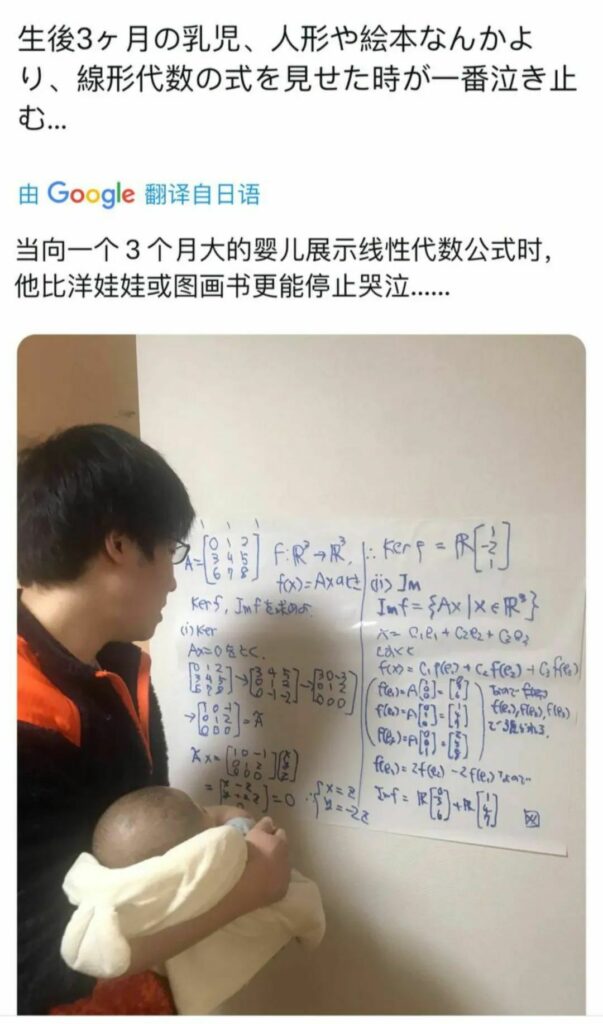 生後3ヶ月の乳児、人形や絵本なんかよ
り、線形代数の式を見せた時が一番泣き止
む...
由 Google 翻译自日语
当向一个 3 个月大的婴儿展示线性代数公式时，
他比洋娃娃或图画书更能停止哭泣......
A = [0 1 2
3 4 5
6 7 8]
f: ℝ³ → ℝ³,
f(x) = Ax
Ker f, Im f を求めよ.
(i) Ker
Ax = 0 をとく.
[0 1 2
3 4 5
6 7 8] → [3 4 5
0 1 2
0 -1 -2] → [3 0 -3
0 1 2
0 0 0]
→ [1 0 -1
0 1 2
0 0 0] = Ã
Ãx = [1 0 -1
0 1 2
0 0 0] [x
y
z]
= 0 ∴ { x = z
y = -2z
∴ Ker f = ℝ [1
-2
1]
(ii) Im
Im f = {Ax | x ∈ ℝ³}
x = C₁e₁ + C₂e₂ + C₃e₃
とおくと
f(x) = C₁f(e₁) + C₂f(e₂) + C₃f(e₃)
f(e₁) = A [1
0
0] = [0
3
6]
f(e₂) = A [0
1
0] = [1
4
7]
f(e₃) = A [0
0
1] = [2
5
8]
なので
f(e₁), f(e₂), f(e₃)
f(e₃) = 2f(e₂) - なので
Im f = ℝ [0
3
6] + ℝ [1
4
7]